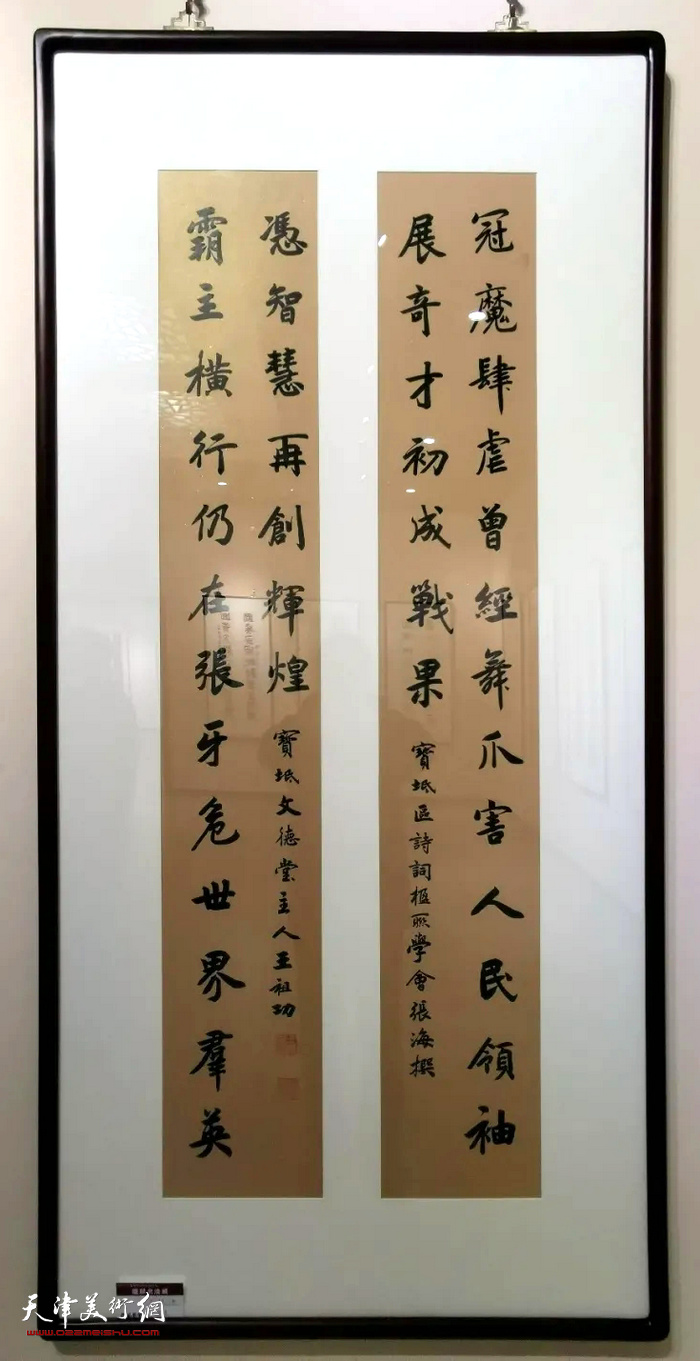 冠魔肆虐曾經舞爪害人民領袖
展奇才初成戰果
寶坻區詩詞楹聯學會張海撰
霸主橫行仍在張牙危世界羣英
憑智慧再創輝煌
寶坻文德堂主人王祖功
天津美術網
www.022meishu.com